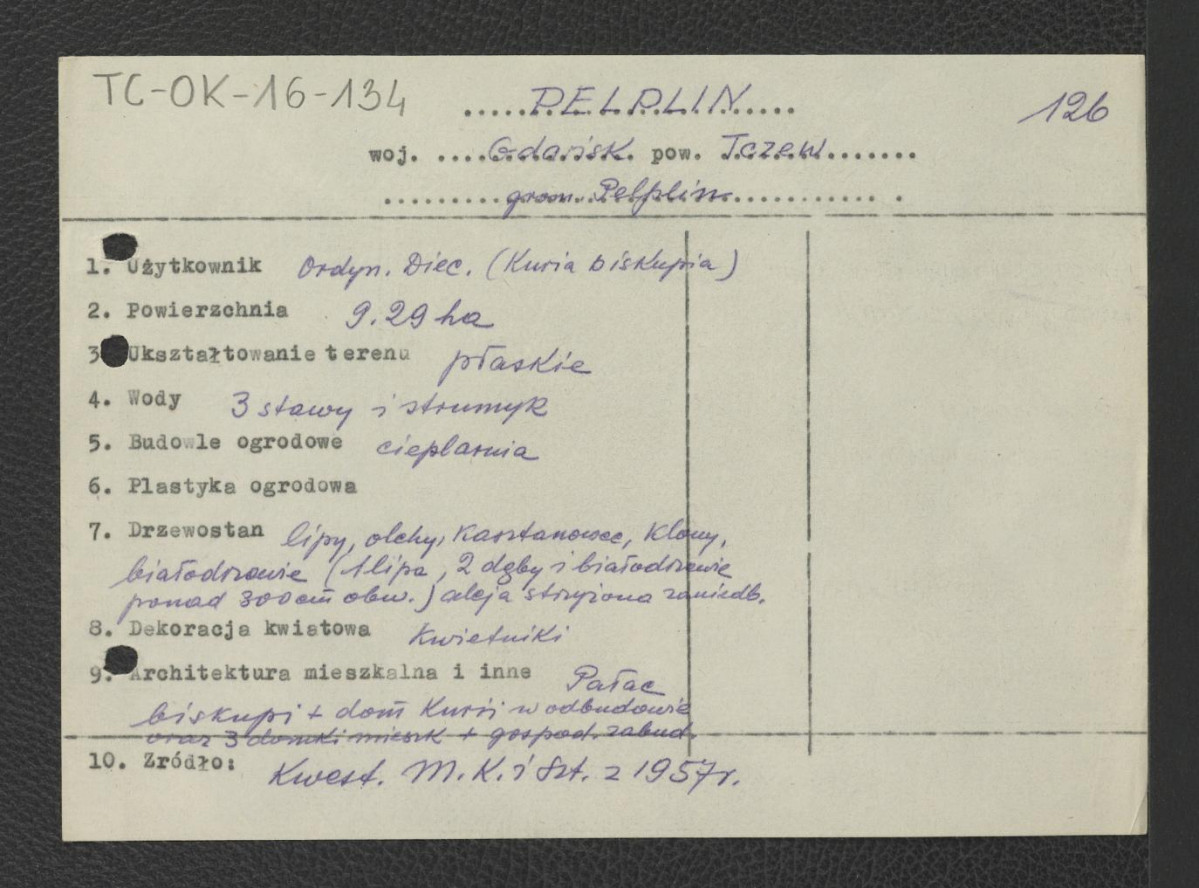 TC-OK-16-134
PELPLIN
126
woj. Gdańsk pow. Tczew
grom. Pelplin
1. Użytkownik Ordyn. Diec. (Kuria biskupia)
2. Powierzchnia 9.29 ha
3. Ukształtowanie terenu płaskie
4. Wody 3 stawy i strumyk
5. Budowle ogrodowe cieplarnia
6. Plastyka ogrodowa
7. Drzewostan lipy, olchy, kasztanowce, klony,
białodrzewie (1 lipa, 2 dęby i białodrzewie
ponad 300 cm obw.) aleja strzyżona zaniedb.
8. Dekoracja kwiatowa kwietniki
9. Architektura mieszkalna i inne Pałac
biskupi + dom Kurii w odbudowie
oraz 3 domki mieszk + gospod. zabud.
10. Źródło: Kwest. M.K. i Szt. z 1957 r.